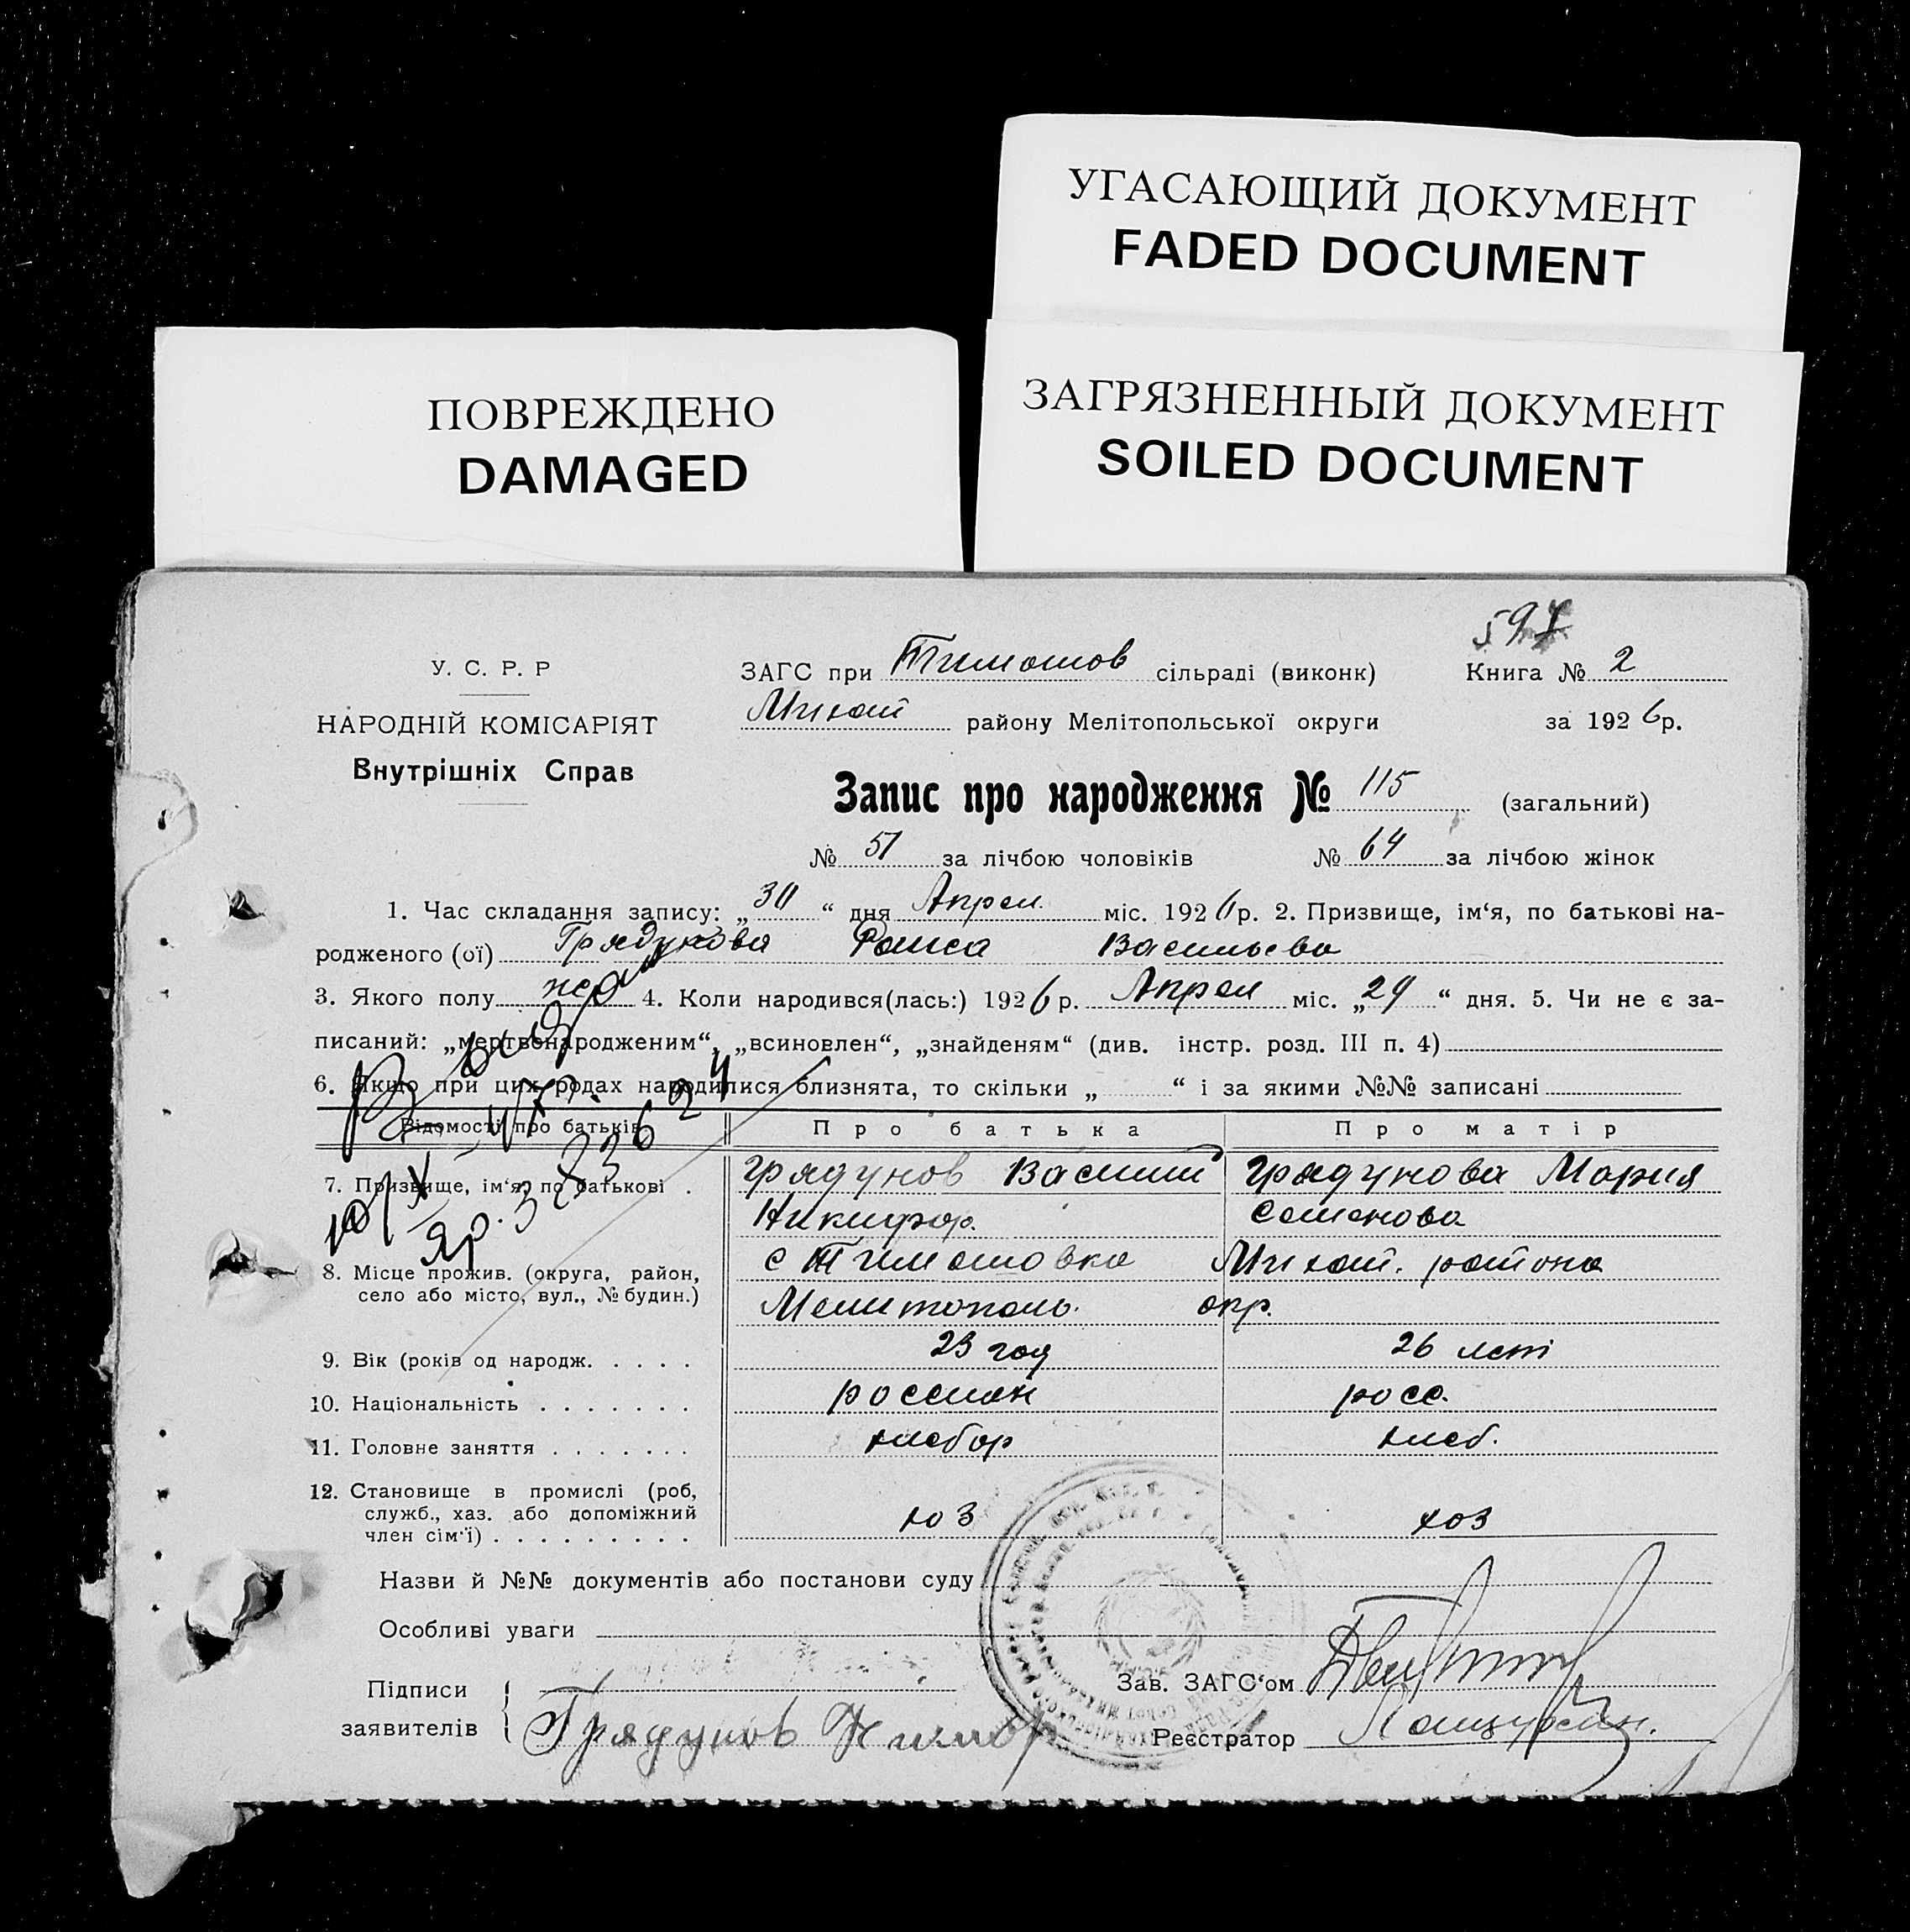 УГАСАЮЩИЙ ДОКУМЕНТ
FADED DOCUMENT
ПОВРЕЖДЕНО
DAMAGED
ЗАГРЯЗНЕННЫЙ ДОКУМЕНТ
SOILED DOCUMENT
У. С. Р. Р
НАРОДНІЙ КОМІСАРІЯТ
Внутрішніх Справ
ЗАГС при Тимошов сільраді (виконк)
Михай району Мелітопольської округи
Книга № 2
за 1926 р.
Запис про народження № 115 (загальний)
№ 51 за лічбою чоловіків № 64 за лічбою жінок
1. Час складання запису: „30“ дня Апрел міс. 1926 р. 2. Призвище, ім‘я, по батькові на-
родженого (ої) Грядунова Раиса Васильева
3. Якого полу 4. Коли народився(лась:) 1926 р. Апрел міс. „29“ дня. 5. Чи не є за-
писаний: „мертвонародженим“, „всиновлен“, „знайденям“ (див. інстр. розд. III п. 4)
6. Якщо при цих родах народилися близнята, то скільки „ “ і за якими №№ записані
Відомості про батьків Про батька Про матір
7. Призвище, ім‘я, по батькові . Грядунов Василий Грядунова Мария
Никифор. Семенова
8. Місце прожив. (округа, район, с Тимошовка Михай. района
село або місто, вул., № будин.) Мелитополь. окр.
9. Вік (років од народж. . . . . 23 год 26 лет
10. Національність . . . . . . . россиян росс.
11. Головне заняття . . . . . . . хлебор хлеб.
12. Становище в промислі (роб,
служб., хаз. або допоміжний хоз хоз
член сім‘ї) . . . . . . . . .
Назви й №№ документів або постанови суду
Особливі уваги
Підписи
заявителів Грядунов
Зав. ЗАГС‘ом
Реєстратор